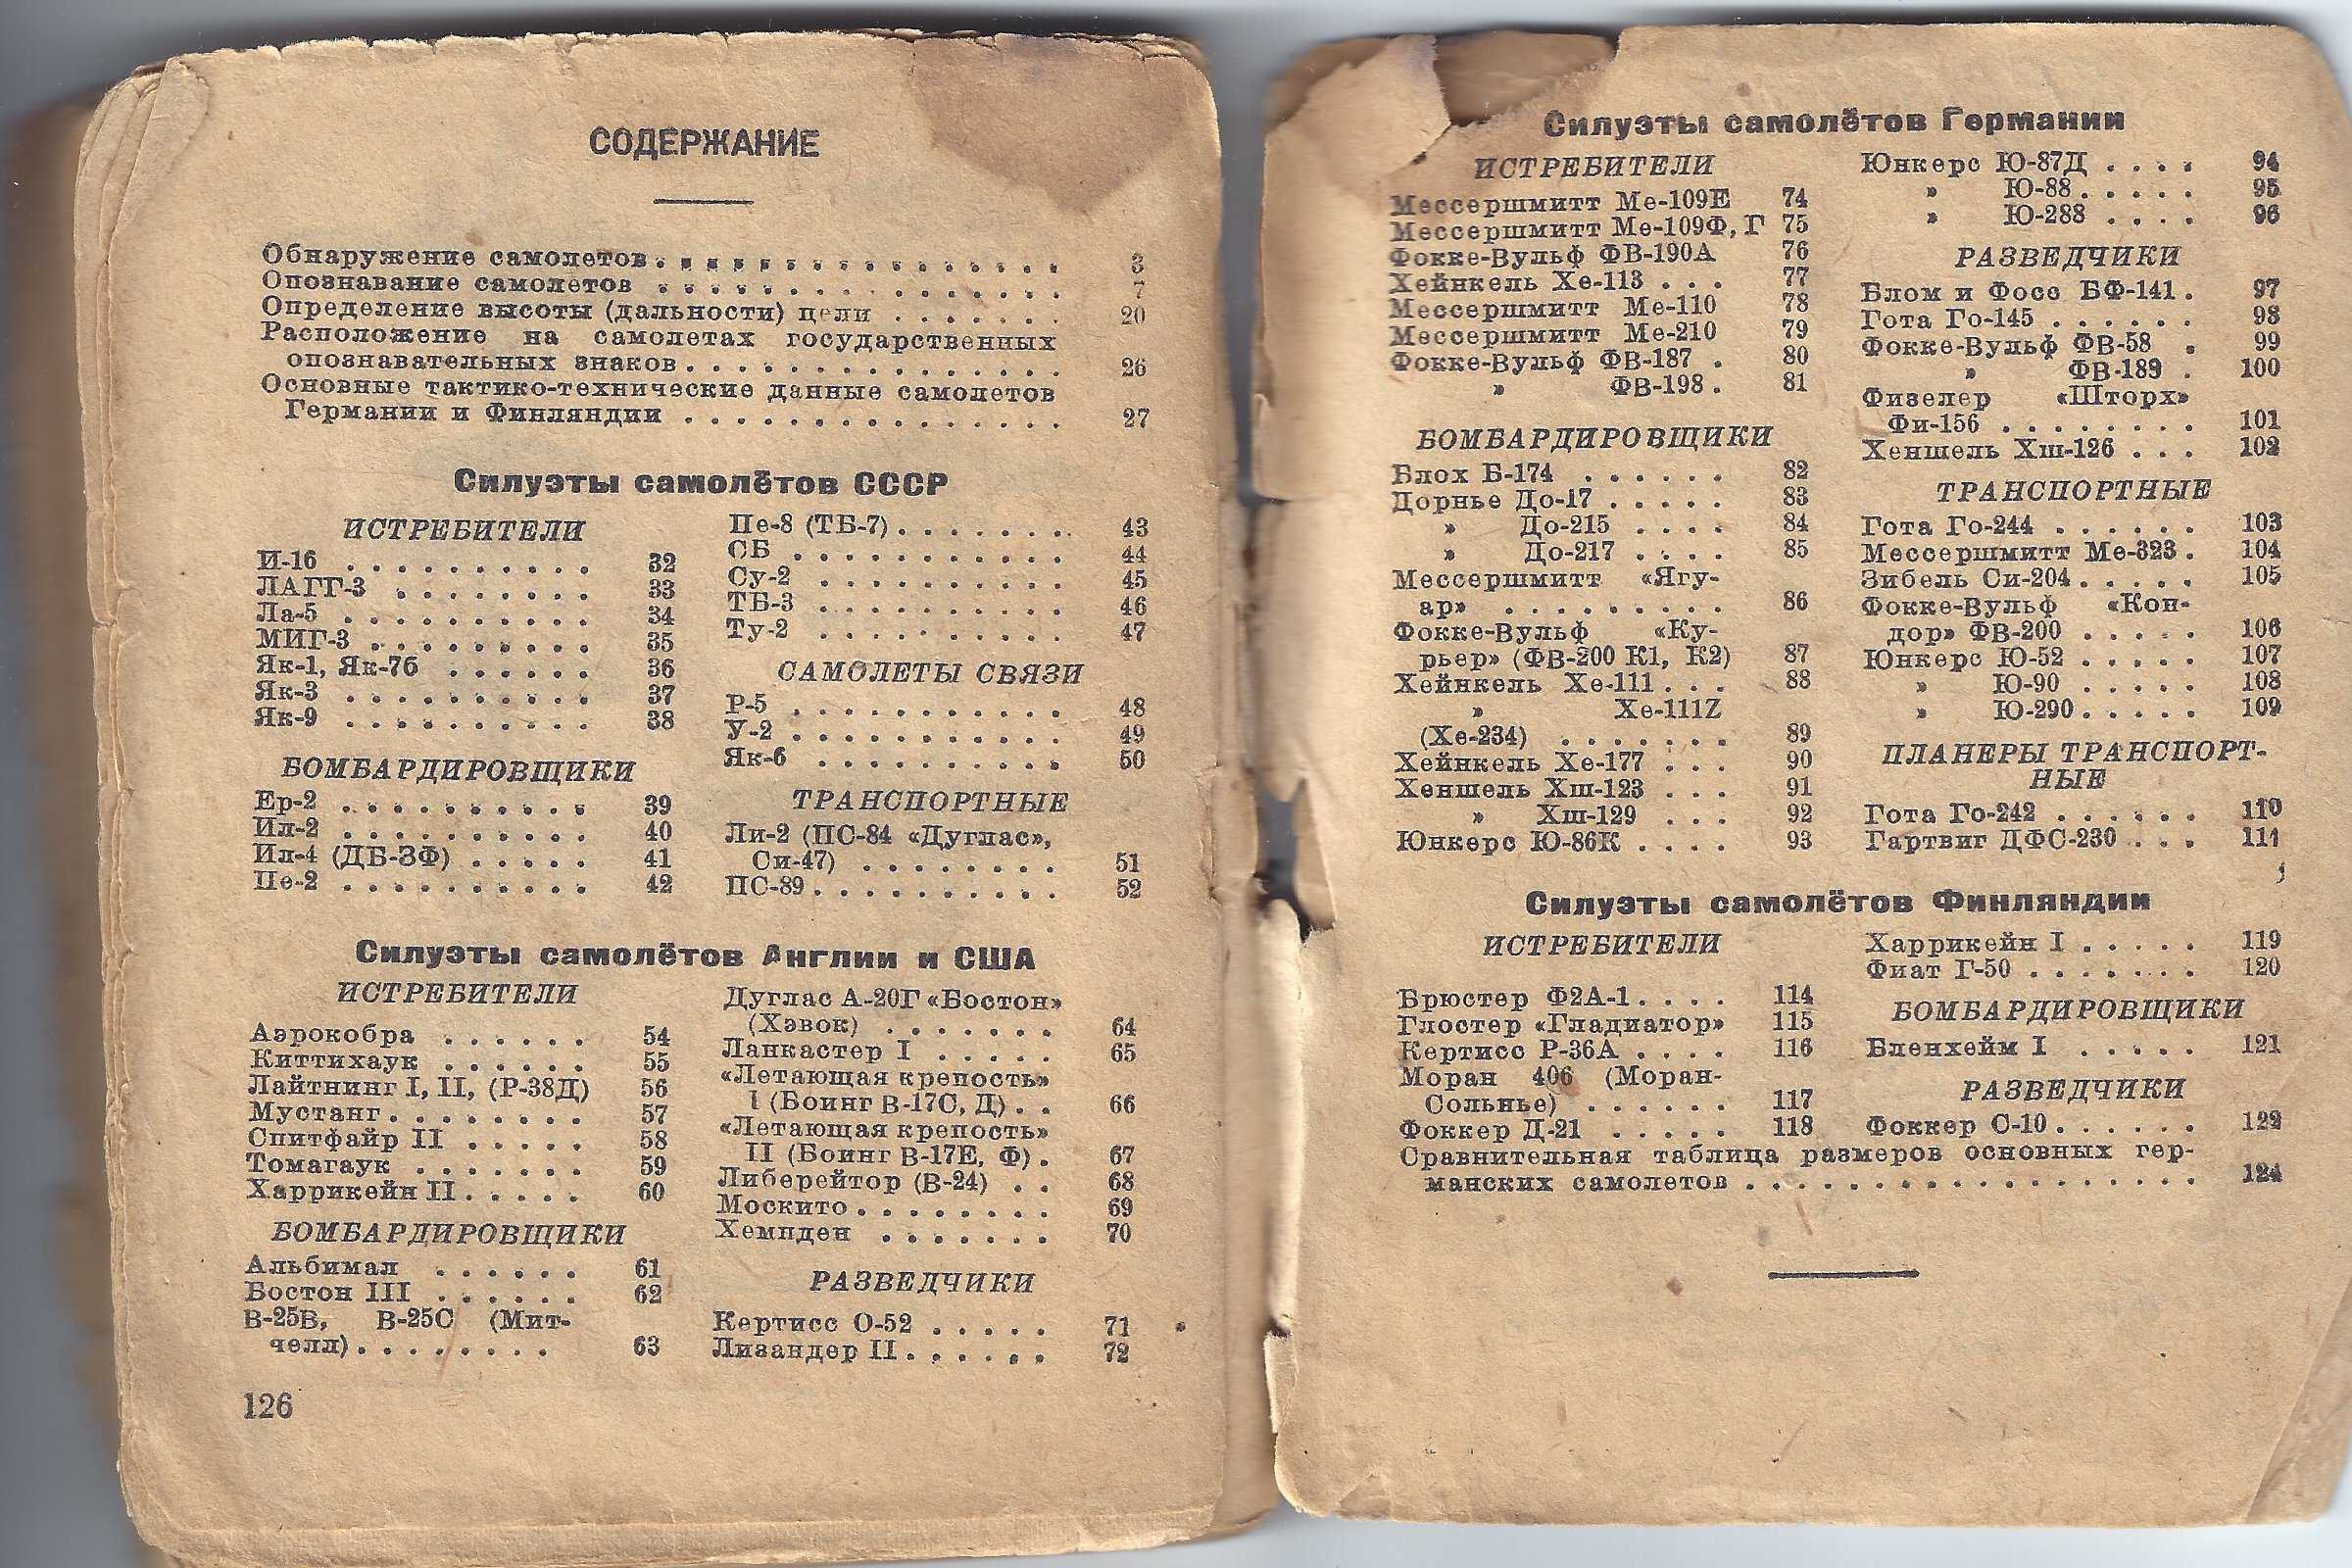 СОДЕРЖАНИЕ
Обнаружение самолетов . . . . . . . . . . . . . . . . 3
Опознавание самолетов . . . . . . . . . . . . . . . . 7
Определение высоты (дальности) цели . . . . . . . 20
Расположение на самолетах государственных
опознавательных знаков . . . . . . . . . . . . . . . 26
Основные тактико-технические данные самолетов
Германии и Финляндии . . . . . . . . . . . . . . . 27
Силуэты самолётов СССР
ИСТРЕБИТЕЛИ
И-16 . . . . . . . . . . 32
ЛАГГ-3 . . . . . . . . 33
Ла-5 . . . . . . . . . . 34
МИГ-3 . . . . . . . . . 35
Як-1, Як-7б . . . . . . 36
Як-3 . . . . . . . . . . 37
Як-9 . . . . . . . . . . 38
БОМБАРДИРОВЩИКИ
Ер-2 . . . . . . . . . . 39
Ил-2 . . . . . . . . . . 40
Ил-4 (ДБ-3Ф) . . . . . 41
Пе-2 . . . . . . . . . . 42
Пе-8 (ТБ-7) . . . . . . . 43
СБ . . . . . . . . . . . 44
Су-2 . . . . . . . . . . 45
ТБ-3 . . . . . . . . . . 46
Ту-2 . . . . . . . . . . 47
САМОЛЕТЫ СВЯЗИ
Р-5 . . . . . . . . . . . 48
У-2 . . . . . . . . . . . 49
Як-6 . . . . . . . . . . 50
ТРАНСПОРТНЫЕ
Ли-2 (ПС-84 «Дуглас»,
Си-47) . . . . . . . . 51
ПС-89 . . . . . . . . . . 52
Силуэты самолётов Англии и США
ИСТРЕБИТЕЛИ
Аэрокобра . . . . . . 54
Киттихаук . . . . . . 55
Лайтнинг I, II, (Р-38Д) 56
Мустанг . . . . . . . . 57
Спитфайр II . . . . . 58
Томагаук . . . . . . . 59
Харрикейн II . . . . . 60
БОМБАРДИРОВЩИКИ
Альбимал . . . . . . 61
Бостон III . . . . . . 62
В-25В, В-25С (Мит-
челл) . . . . . . . . 63
Дуглас А-20Г «Бостон»
(Хэвок) . . . . . . . 64
Ланкастер I . . . . . 65
«Летающая крепость»
I (Боинг В-17С, Д) . . 66
«Летающая крепость»
II (Боинг В-17Е, Ф) . 67
Либерейтор (В-24) . . 68
Москито . . . . . . . . 69
Хемпден . . . . . . . 70
РАЗВЕДЧИКИ
Кертисс О-52 . . . . . 71
Лизандер II . . . . . . 72
126
Силуэты самолётов Германии
ИСТРЕБИТЕЛИ
Мессершмитт Ме-109Е 74
Мессершмитт Ме-109Ф, Г 75
Фокке-Вульф ФВ-190А 76
Хейнкель Хе-113 . . . 77
Мессершмитт Ме-110 78
Мессершмитт Ме-210 79
Фокке-Вульф ФВ-187 . 80
» ФВ-198 . 81
БОМБАРДИРОВЩИКИ
Блох Б-174 . . . . . . 82
Дорнье До-17 . . . . . 83
» До-215 . . . . 84
» До-217 . . . . 85
Мессершмитт «Ягу-
ар» . . . . . . . . . 86
Фокке-Вульф «Ку-
рьер» (ФВ-200 К1, К2) 87
Хейнкель Хе-111 . . . 88
» Хе-111Z
(Хе-234) . . . . . . . 89
Хейнкель Хе-177 . . . 90
Хеншель Хш-123 . . . 91
» Хш-129 . . . 92
Юнкерс Ю-86К . . . . 93
Юнкерс Ю-87Д . . . . 94
» Ю-88 . . . . . 95
» Ю-288 . . . . 96
РАЗВЕДЧИКИ
Блом и Фосс БФ-141 . 97
Гота Го-145 . . . . . . 98
Фокке-Вульф ФВ-58 . 99
» ФВ-189 . 100
Физелер «Шторх»
Фи-156 . . . . . . . . 101
Хеншель Хш-126 . . . 102
ТРАНСПОРТНЫЕ
Гота Го-244 . . . . . . 103
Мессершмитт Ме-323 . 104
Зибель Си-204 . . . . . 105
Фокке-Вульф «Кон-
дор» ФВ-200 . . . . . 106
Юнкерс Ю-52 . . . . . 107
» Ю-90 . . . . . 108
» Ю-290 . . . . . 109
ПЛАНЕРЫ ТРАНСПОРТ-
НЫЕ
Гота Го-242 . . . . . . 110
Гартвиг ДФС-230 . . . 111
Силуэты самолётов Финляндии
ИСТРЕБИТЕЛИ
Брюстер Ф2А-1 . . . . 114
Глостер «Гладиатор» 115
Кертисс Р-36А . . . . 116
Моран 406 (Моран-
Сольнье) . . . . . . 117
Фоккер Д-21 . . . . . 118
Харрикейн I . . . . . 119
Фиат Г-50 . . . . . . . 120
БОМБАРДИРОВЩИКИ
Бленхейм I . . . . . 121
РАЗВЕДЧИКИ
Фоккер С-10 . . . . . . 122
Сравнительная таблица размеров основных гер-
манских самолетов . . . . . . . . . . . . . . . . . . 124